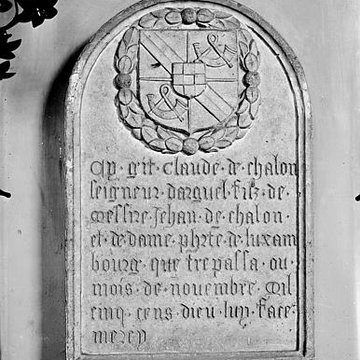 Cy · git · Claude · de · chalon
seigneur · darguel · filz · de ·
messire · Jehan · de · chalon ·
et · de · dame · phrte · de · luxam
bourg · que · trepassa · ou ·
mois · de · novembre · mil
cinq · cens · dieu · luy · face ·
mercy